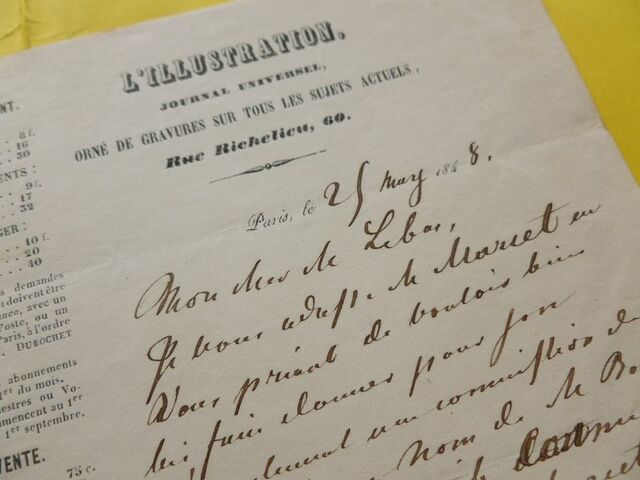 L'ILLUSTRATION,
JOURNAL UNIVERSEL,
ORNÉ DE GRAVURES SUR TOUS LES SUJETS ACTUELS,
Rue Richelieu, 60.
Paris, le 25 May 1848.
Mon cher M Lebas,
Je vous adresse M Marset en
vous priant de vouloir bien
lui faire donner pour son
une commission de
nom de M
ENT.
8 f.
16
30
ENTS :
9 f.
17
32
GER :
10 f.
20
40
demandes
doivent être
anco, avec un
Poste, ou un
Paris, à l'ordre
DUBOCHET
abonnements
1er du mois.
mestres ou Vo-
mmencent au 1er
1er septembre.
VENTE.
75 c.